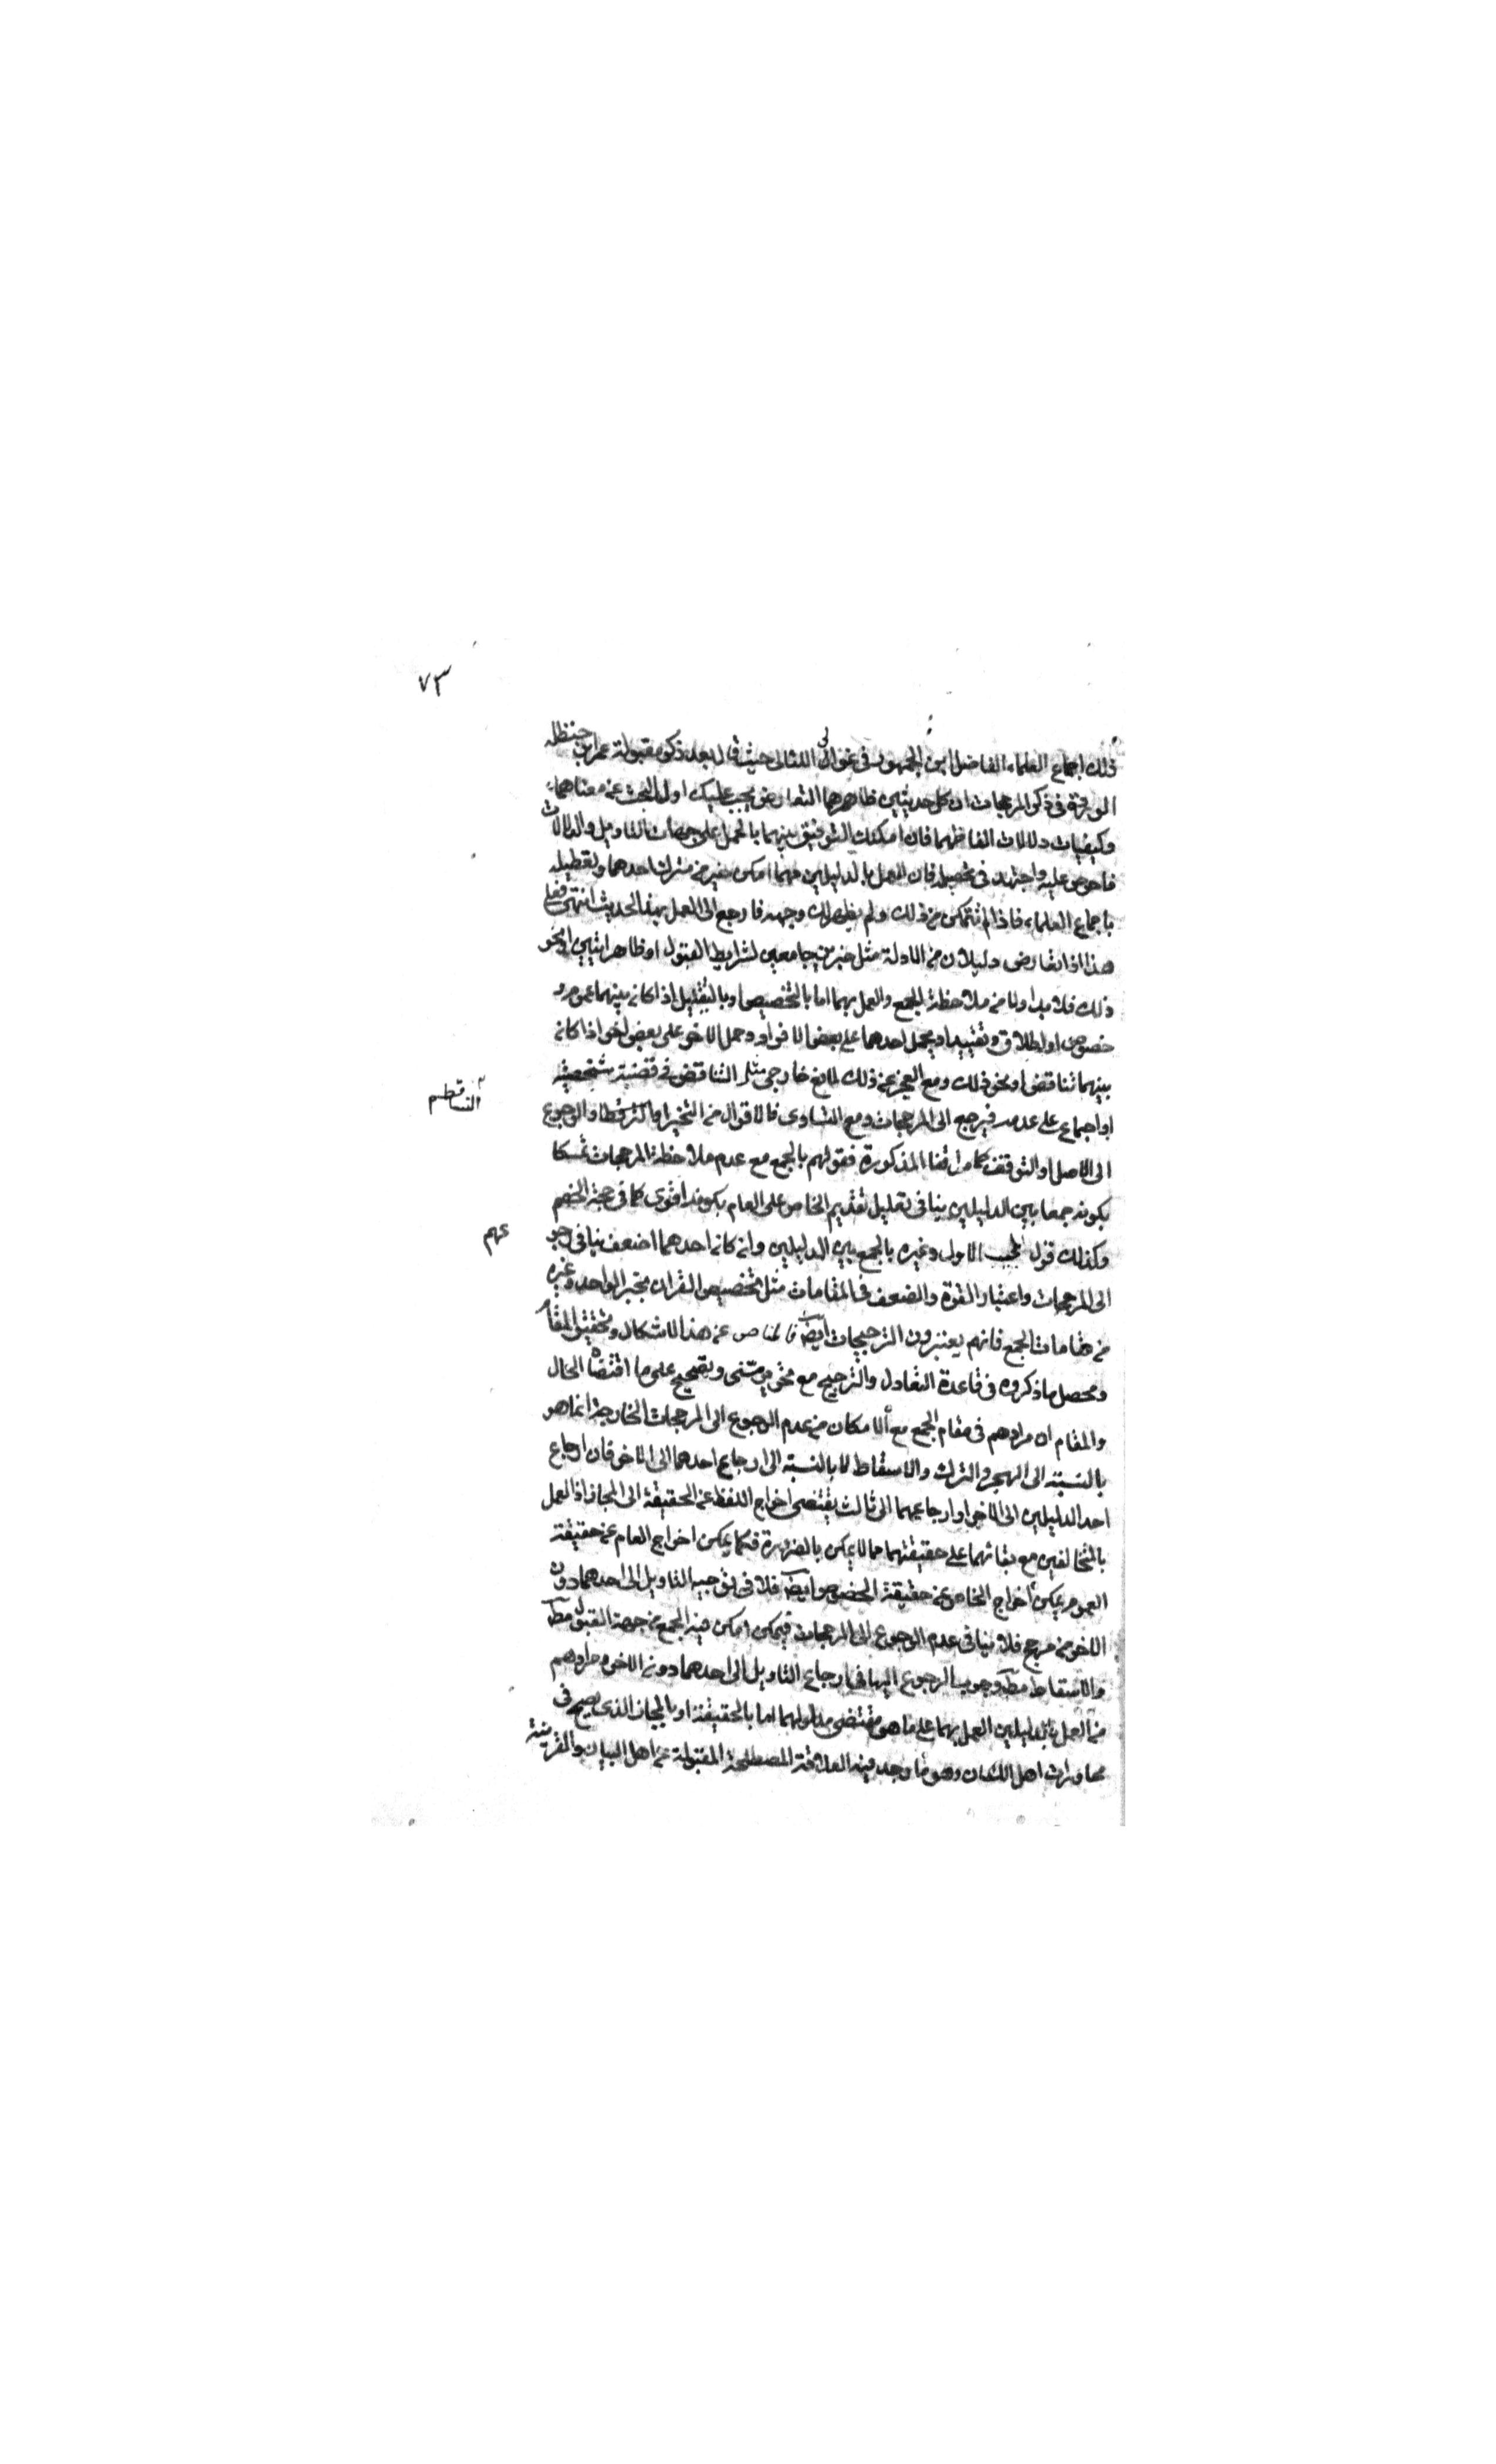 ٧٣
ذلك اجماع العلماء الفاضل ابن الجمهور في غوالي اللئالي حيث قال بعد ذكر مقبولة عمر بن حنظله
الموخرة في ذكر المرجحات ان كل حديثين ظاهرهما التعارض يجب عليك اولا البحث عن معناهما
وكيفيات دلالات الفاظهما فان امكنك التوفيق بينهما بالحمل على جهات التاويل والدلالات
فاحرص عليه واجتهد في تحصيله فان العمل بالدليلين مهما امكن خير من ترك احدهما وتعطيله
باجماع العلماء فاذا لم تتمكن من ذلك ولم يظهر لك وجهه فارجع الى العمل بهذا الحديث انتهى فعلى
هذا اذا تعارض دليلان من الادلة مثل خبرين جامعين لشرايط القبول او ظاهر ايتين او نحو
ذلك فلا بد اولا من ملاحظة الجمع والعمل بهما اما بالتخصيص او بالتقييد اذا كان بينهما عموم و
خصوص او اطلاق وتقييد او بحمل احدهما على بعض الافراد وحمل الاخر على بعض اخر اذا كان
بينهما تناقض او نحو ذلك ومع العجز عن ذلك لمانع خارجي مثل التناقض في قضية شخصية
او اجماع على عدمه فيرجع الى المرجحات ومع التساوى فالاقوال من التخير او والرجوع
التساقط
الى الاصل او التوقف كما المذكورة فقولهم بالجمع مع عدم ملاحظة المرجحات تمسكا
بكونه جمعا بين الدليلين ينافى تعليل تقديم الخاص على العام بكونه اقوى كما في حجة الخصم
وكذلك قول المجيب الاول وغيره بالجمع بين الدليلين وان كان احدهما اضعف ينافى رجو
عهم
الى المرجحات واعتبار القوة والضعف في المقامات مثل تخصيص القران بخبر الواحد وغيره
من مقامات الجمع فانهم يعتبرون الترجيحات ايضا فالمناص عن هذا الاشكال وتحقيق المقام
ومحصل ما ذكروه في قاعدة التعادل والترجيح مع وتصحيح على ما اقتضاه الحال
والمقام ان مرادهم في مقام الجمع مع الامكان من عدم الرجوع الى المرجحات الخارجة انما هو
بالنسبة الى الهجر والترك والاسقاط لا بالنسبة الى ارجاع احدهما الى الاخر فان ارجاع
احد الدليلين الى الاخر او ارجاعهما الى ثالث يقتضى اخراج اللفظ عن الحقيقة الى المجاز اذ العمل
بالمتخالفين مع بقائهما على حقيقتهما مما لا يمكن بالضرورة فكما يمكن اخراج العام عن حقيقة
العموم يمكن اخراج الخاص عن حقيقة الخصوص ايضا توجيه التاويل الى احدهما دون
الاخر من مرجح فلا ينافى عدم الرجوع الى المرجحات امكن فيه الجمع من جهة القبول مط
والاسقاط مط وجوب الرجوع اليها في ارجاع التاويل الى احدهما دون الاخر ومرادهم
من العمل بالدليلين العمل بهما على ما هو مقتضى مدلولهما اما بالحقيقة او بالمجاز الذى يصح في
محاورات اهل اللسان وهو ما وجد فيه العلاقة المصطلحة المقبولة عن اهل البيان والقرينة